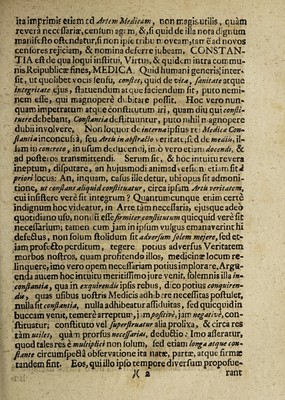 ita imprimit etiem td Artem Medicam, non magis utilis, quàm
reverâ necessariæ, censum agam, &, si quid de illa nota dignum
manifesto ostendatur, si non ipse tribum oveam, tam è ad novos
censores rejiciam, & nomina deferre jubeam. CONSTAN-
TIA est de qua loqui institui, Virtus, & quidem intra commu-
nis Reipublicæ fines, MEDICA. Quid humani generis inter-
sit, ut quolibet vocis sensu, constet, quid de vita, sanitate atque
integritate ejus, statuendum atque faciendum sit, puto nemi-
nem esse, qui magnoperè dubitare possit. Hoc vero nun-
quam impetratum atque constitutum iri, quam diu qui consti-
tuere debebant, Constantia destituuntur, puto nihil magnopere
dubii involvere. Non loquor de interna ipsius rei Medicæ Con-
stantia inconcussâ, seu Artis in abstracto veritate, sed de mediis, il-
lam in concreto, in usum deducendi, imò vero etiam docendi, &
ad posteros transmittendi. Serum sit, & hoc intuitu revera
ineptum, disputare, an hujusmodi animadversum etiam sit à
priori locus: An, inquam, casus ille detur, ubi opus sit admoni-
tione, ut constans aliquid constituatur, circa ipsam Artis veritatem,
cui insistere verè sit integrum? Quantumcunque enim certè
indignum hoc videatur, in Arte tàm necessaria, ejusque adeò
quotidiano usu, nonnisi esse firmiter constitutum quicquid verè sit
necessarium; tamen cum jam in ipsum vulgus emanaverit hi
defectus, non solum stolidum sit adversum solem mejere, sed et-
iam profectò perditum, tegere potius adversus Veritatem
morbos nostros, quam profitendo illos, medicinæ locum re-
linquere, imo vero opem necessariam potius implorare. Argu-
enda autem hoc intuitu meritissimo jure venit, solemnis illa in-
constantia, qua in exquirendis ipsis rebus, dico potius conquiren-
dis, quas usibus nostris Medicis adhibere necessitas postulet,
nulla constantia, nulla adhibeatur assiduitas, sed quod quid in
buccam venit, temerè arreptum, jam positivè, jam negativè, con-
stituatur; constituto vel superstruatur alia prolixa, & circa res
tàm utiles, quàm prorsus necessarias, deductio: Imo asseratur,
quod tales res è multiplici non solum, sed etiam longa atque con-
stante circumspectâ observatione ita natæ, partæ, atque firmæ
tandem sint. Eos, qui illo ipso tempore diversum proposue-
K 2 rant